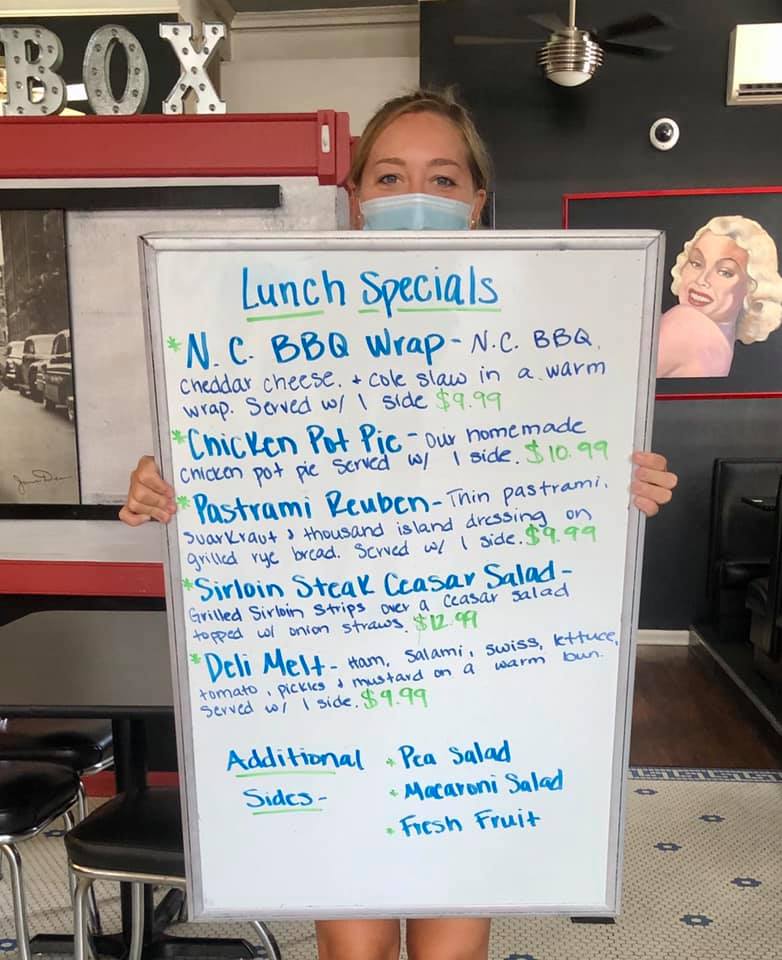 BOX
Lunch Specials
*N.C. BBQ Wrap - N.C. BBQ,
cheddar cheese, + cole slaw in a warm
wrap. Served w/ 1 side $9.99
*Chicken Pot Pie - Our homemade
chicken pot pie served w/ 1 side. $10.99
*Pastrami Reuben - Thin pastrami,
suarkraut & thousand island dressing on
grilled rye bread. Served w/ 1 side. $9.99
*Sirloin Steak Ceasar Salad -
Grilled Sirloin strips over a ceasar salad
topped w/ onion straws. $12.99
*Deli Melt - Ham, Salami, swiss, lettuce,
tomato, pickles & mustard on a warm bun.
Served w/ 1 side. $9.99
Additional * Pea Salad
Sides - * Macaroni Salad
* Fresh Fruit